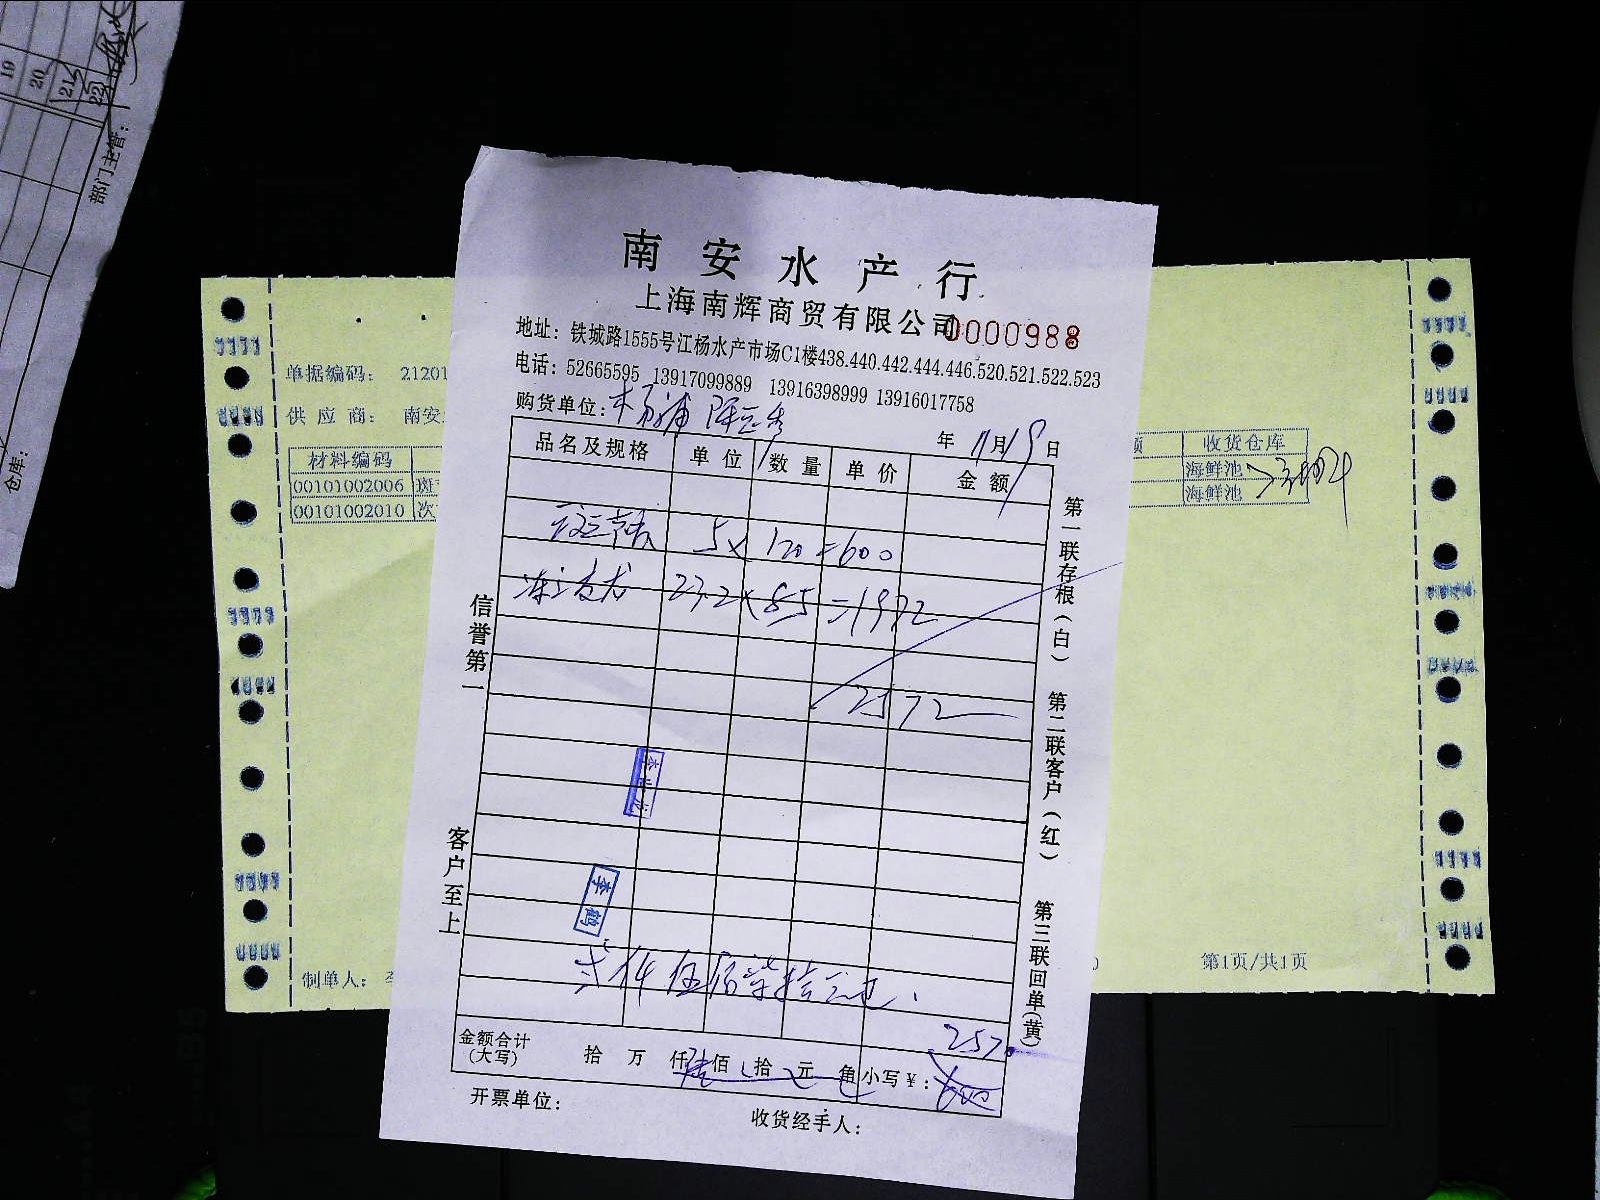 19
20
21
22
部门主管:
仓库:
南安水产行
上海南辉商贸有限公司 0000988
地址: 铁城路1555号江杨水产市场C1楼438.440.442.444.446.520.521.522.523
电话: 52665595 13917099889 13916398999 13916017758
购货单位: 杨浦
年 11月19日
品名及规格 单位 数量 单价 金额
5 x 120 = 600
23.2 x 85 = 1972
2572
信誉第一
客户至上
李鹤
金额合计(大写) 拾 万 仟 佰 拾 元 角 小写¥:
开票单位:
收货经手人:
第一联存根(白) 第二联客户(红) 第三联回单(黄)
单据编码: 21201
供应商: 南安
材料编码
00101002006 斑
00101002010 次
制单人:
收货仓库
海鲜池
海鲜池
第1页/共1页